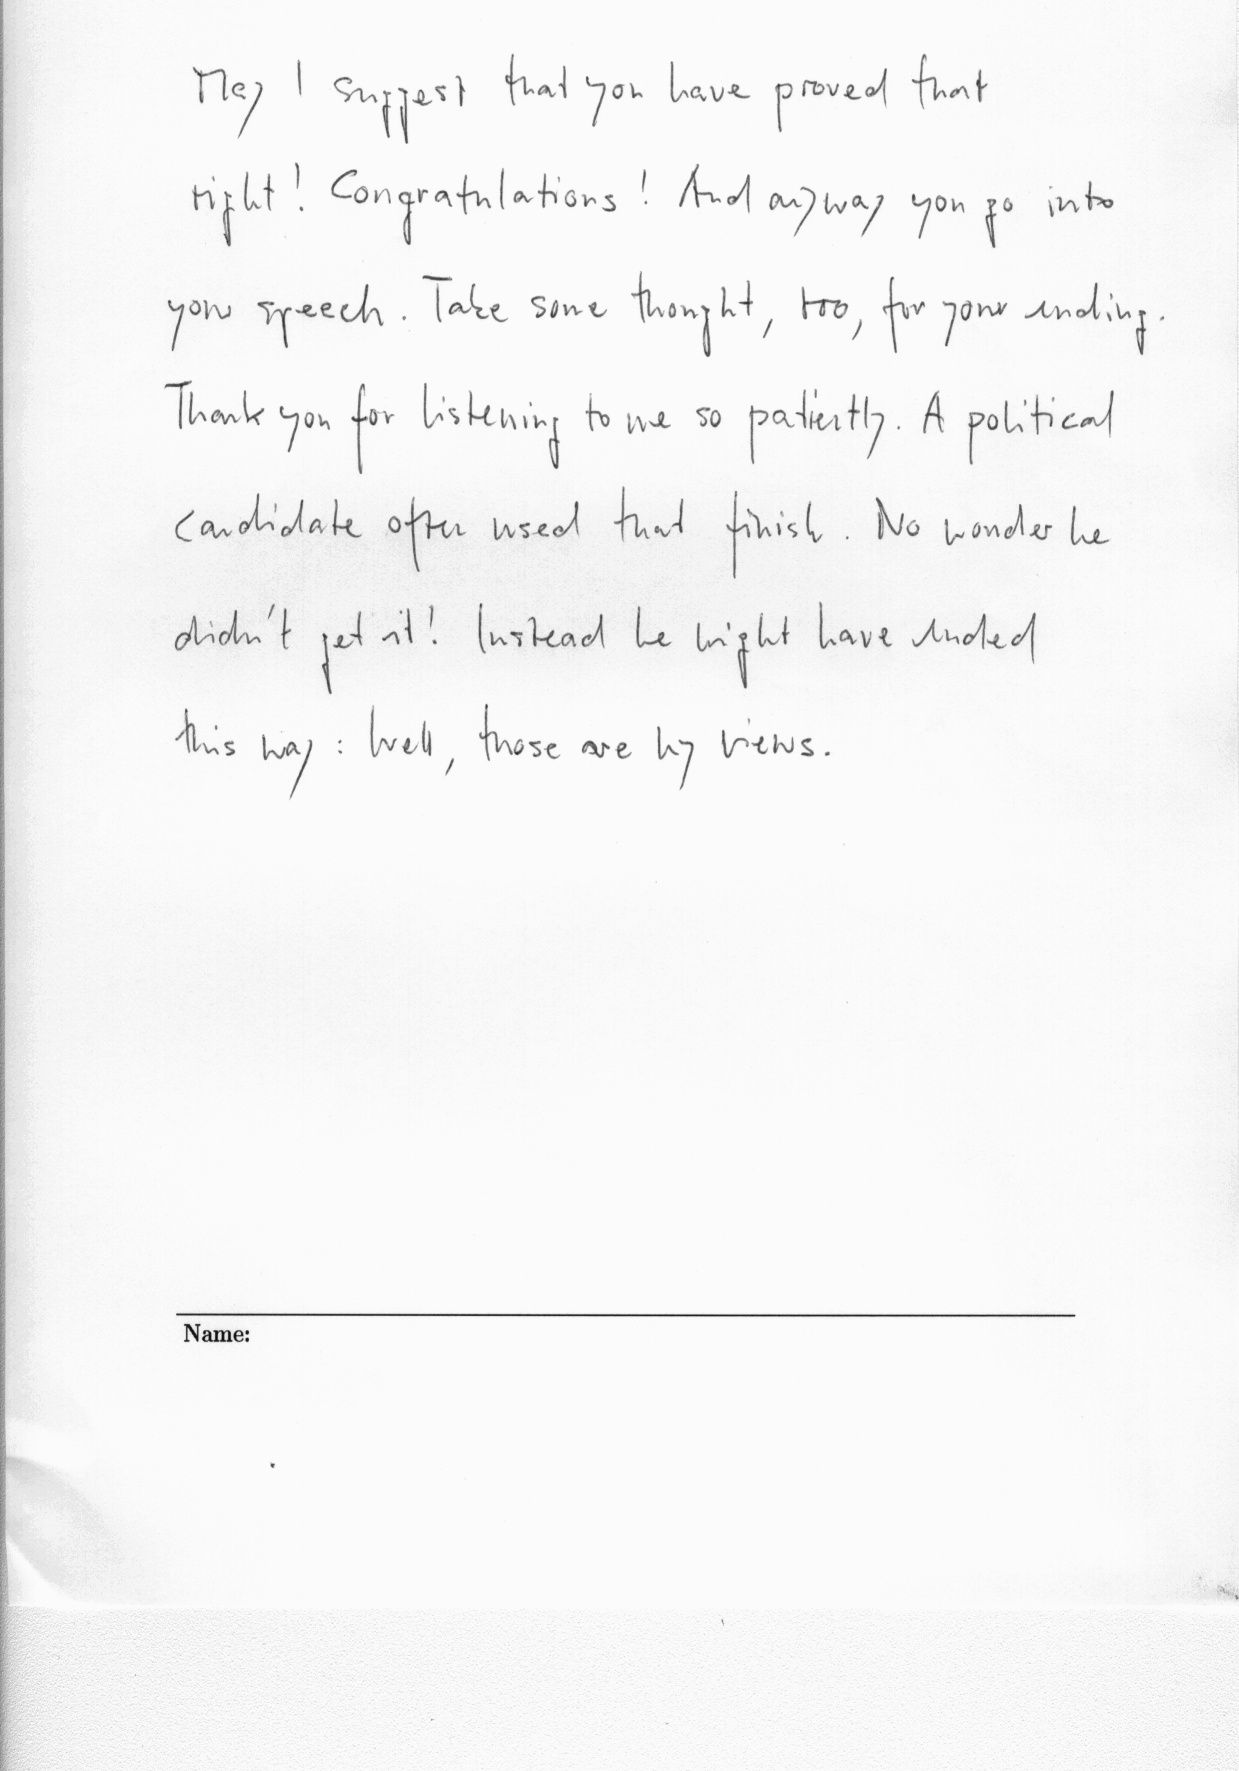 May I suggest that you have proved that
right! Congratulations! And anyway you go into
your speech. Take some thought, too, for your ending.
Thank you for listening to me so patiently. A political
candidate often used that finish. No wonder he
didn't get it! Instead he might have ended
this way: Well, those are my views.
Name: